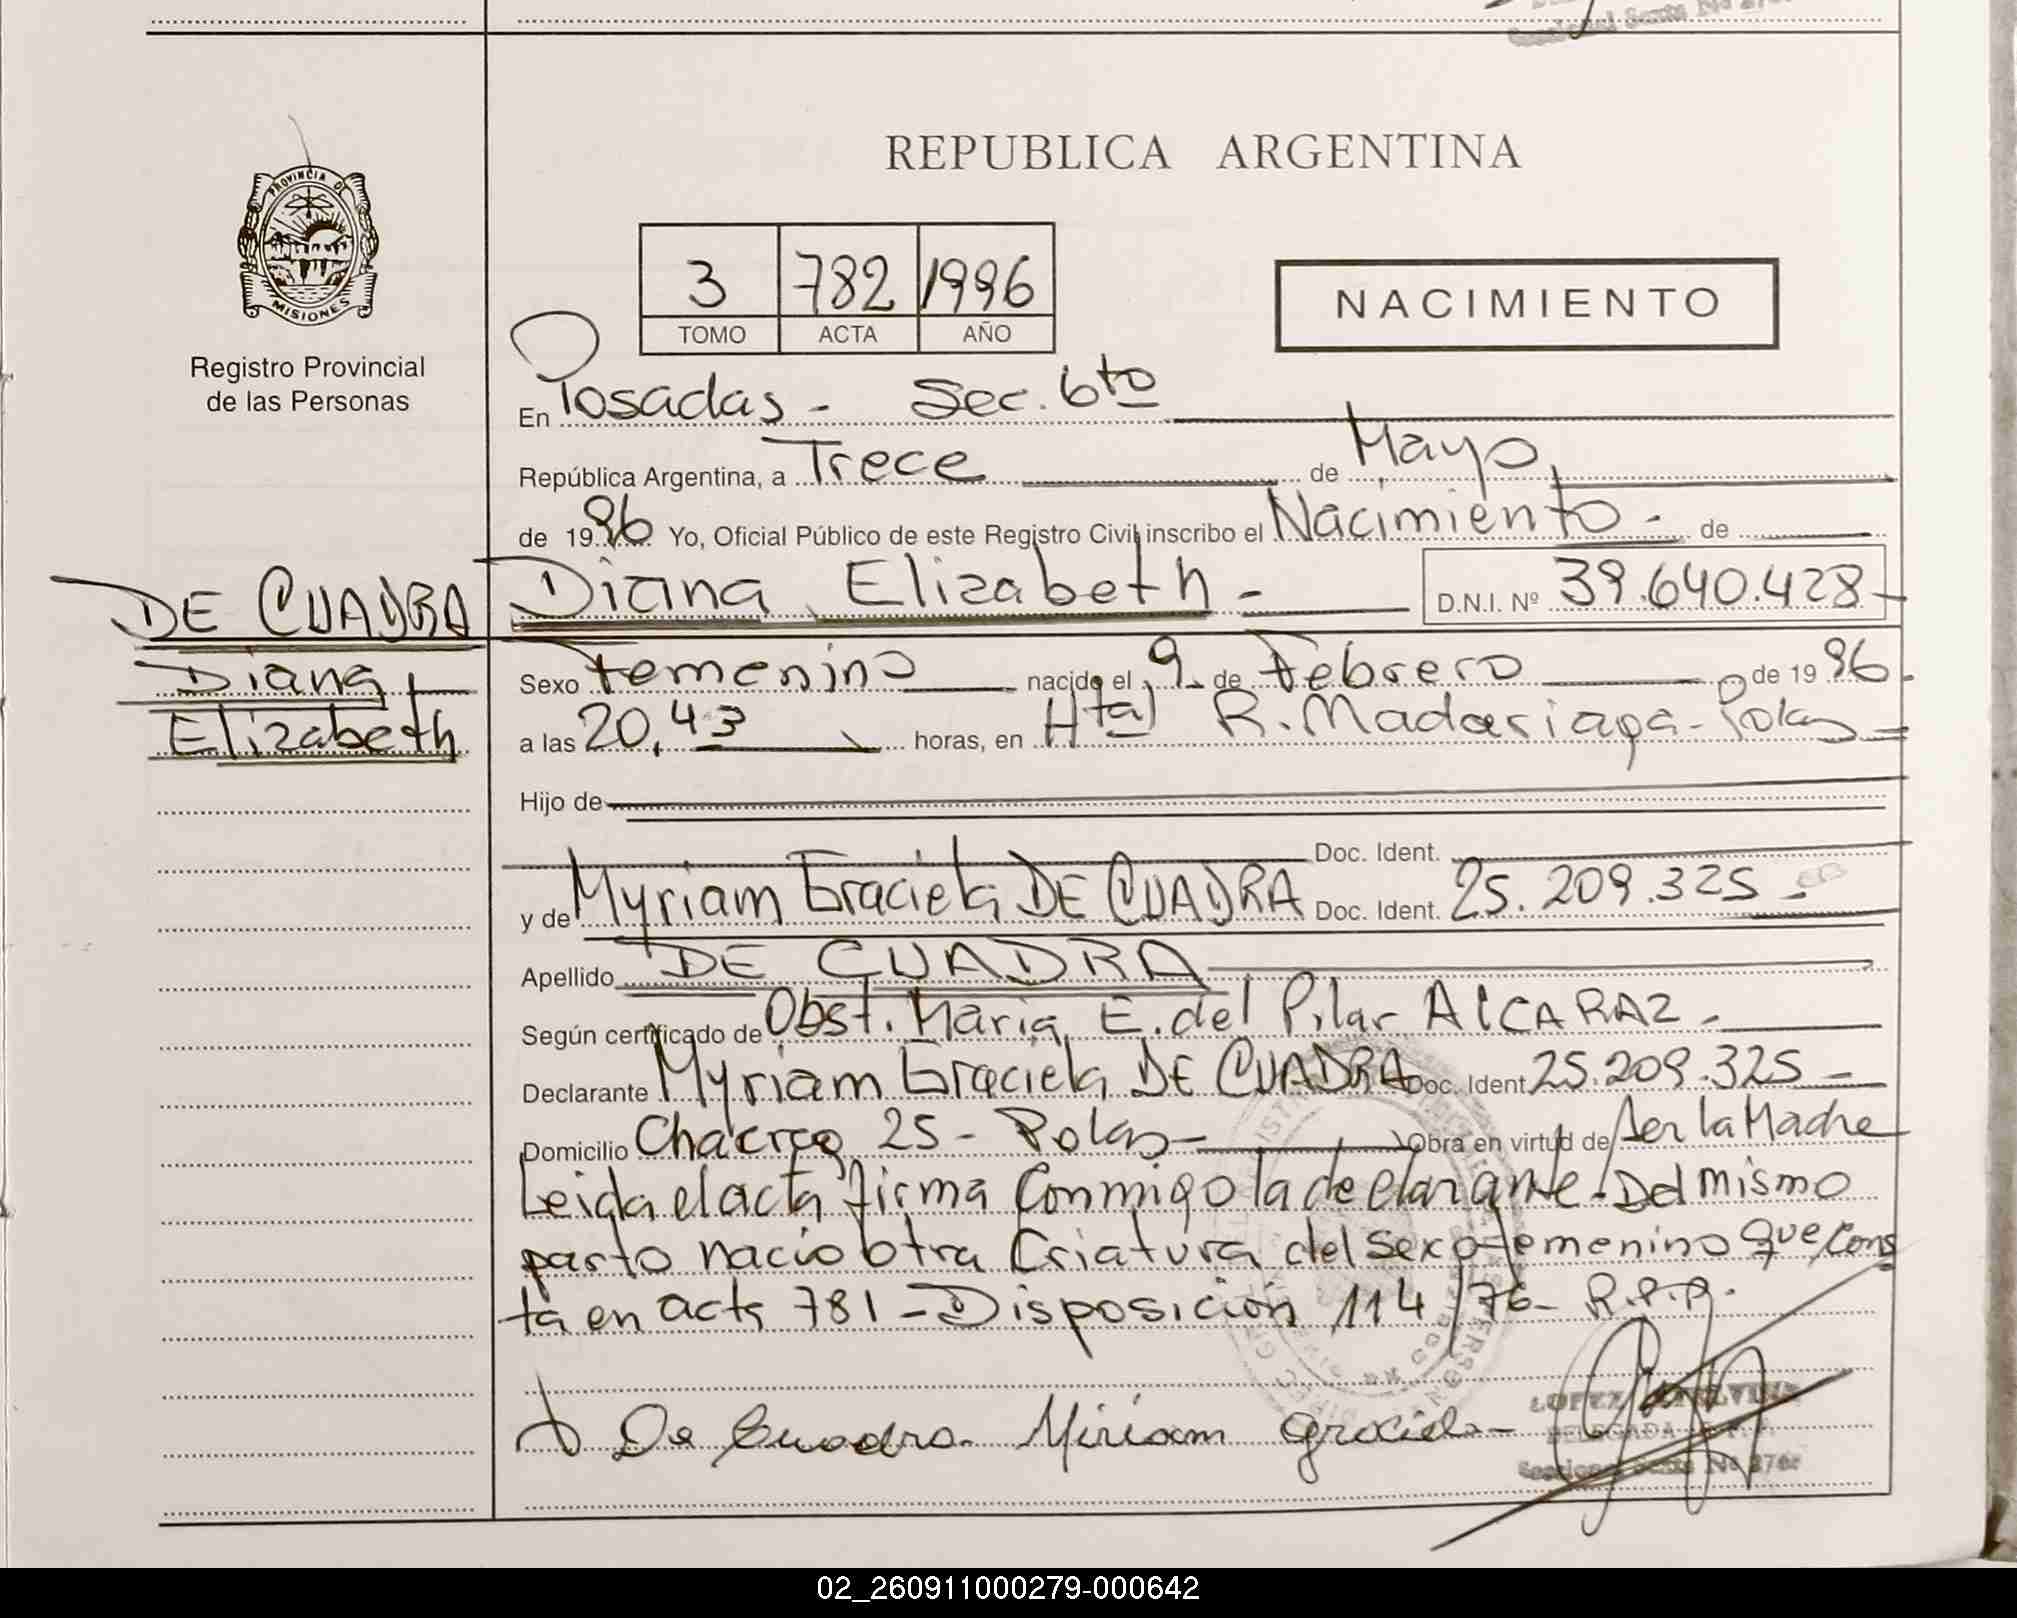 REPUBLICA ARGENTINA
PROVINCIA DE
MISIONES
Registro Provincial
de las Personas
3 782 1996
TOMO ACTA AÑO
NACIMIENTO
En Posadas - Sec. 6to
República Argentina, a Trece de Mayo,
de 1996 Yo, Oficial Público de este Registro Civil inscribo el Nacimiento - de
DE CUADRA
Diana
Elizabeth
Diana Elizabeth - D.N.I. Nº 39.640.428-
Sexo Femenino nacido el 9 de Febrero de 1996.
a las 20,43 horas, en Htal R. Madariaga - Pdas
Hijo de
Doc. Ident.
y de Myriam Graciela DE CUADRA Doc. Ident. 25.209.325 -
Apellido DE CUADRA
Según certificado de Obst. Maria E. del Pilar AlCARAZ -
Declarante Myriam Graciela DE CUADRA Doc. Ident 25.209.325 -
Domicilio Chacra 25 - Pdas - Obra en virtud de Ser la Madre
Leida el acta firma Conmigo la declarante - Del mismo
parto nacio otra Criatura del sexo femenino que cons
ta en acta 781 - Disposición 114/76 - R.P.P.
De Cuadra Miriam graciela
LOPEZ
DELEGADA
Seccional Sexta No
02_260911000279-000642